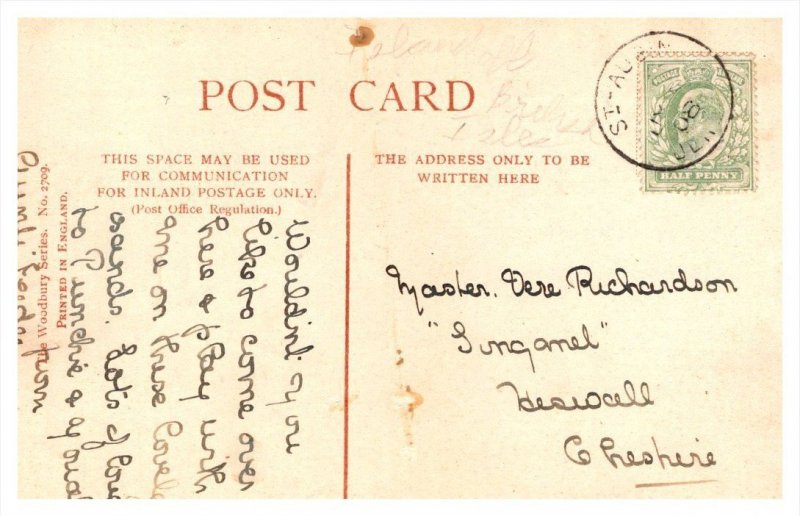 POST CARD
THIS SPACE MAY BE USED
FOR COMMUNICATION
FOR INLAND POSTAGE ONLY.
(Post Office Regulation.)
THE ADDRESS ONLY TO BE
WRITTEN HERE
HALF PENNY
Woodbury Series. No. 2709.
PRINTED IN ENGLAND.
Wouldn't you
like to come over
here & play with
me on these lovel
sands. Lots of lov
to &
from
Master. Vere Richardson
Heswall
Cheshire